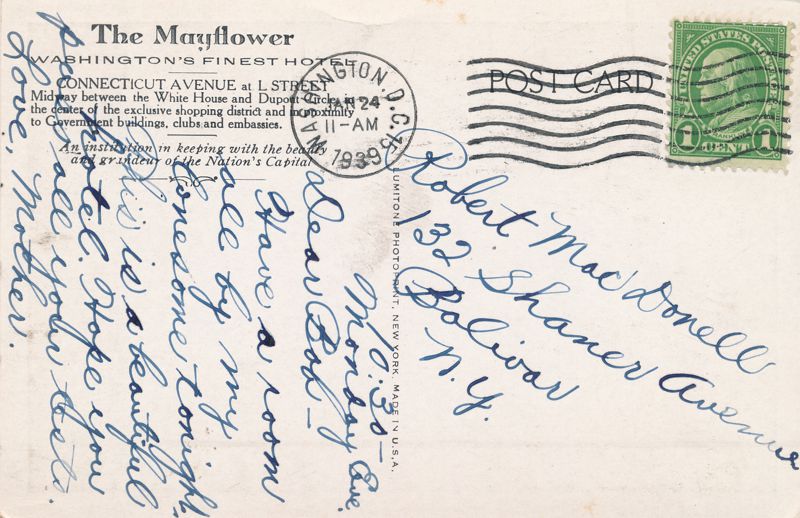 The Mayflower
WASHINGTON'S FINEST HOTEL
CONNECTICUT AVENUE at L STREET
Midway between the White House and Dupont Circle, in
the center of the exclusive shopping district and in proximity
to Government buildings, clubs and embassies.
An institution in keeping with the beauty
and grandeur of the Nation's Capital
WASHINGTON, D.C.
JAN 24
11-AM
1939
POST CARD
UNITED STATES POSTAGE
FRANKLIN
1 CENT 1
LUMITONE PHOTOPRINT, NEW YORK. MADE IN U.S.A.
10:35-
Monday Eve.
Dear Bob-
Have a room
all by my
lonesome tonight.
This is a beautiful
hotel. Hope you
all your tests.
Love, Mother.
Robert MacDonell
132 Shaner Avenue
Bolivar
N.Y.